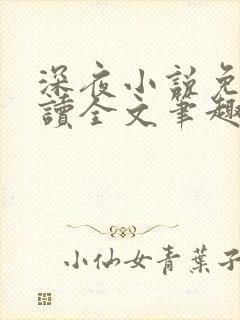 深夜小说免
讀全文笔趣
小仙女青葉子